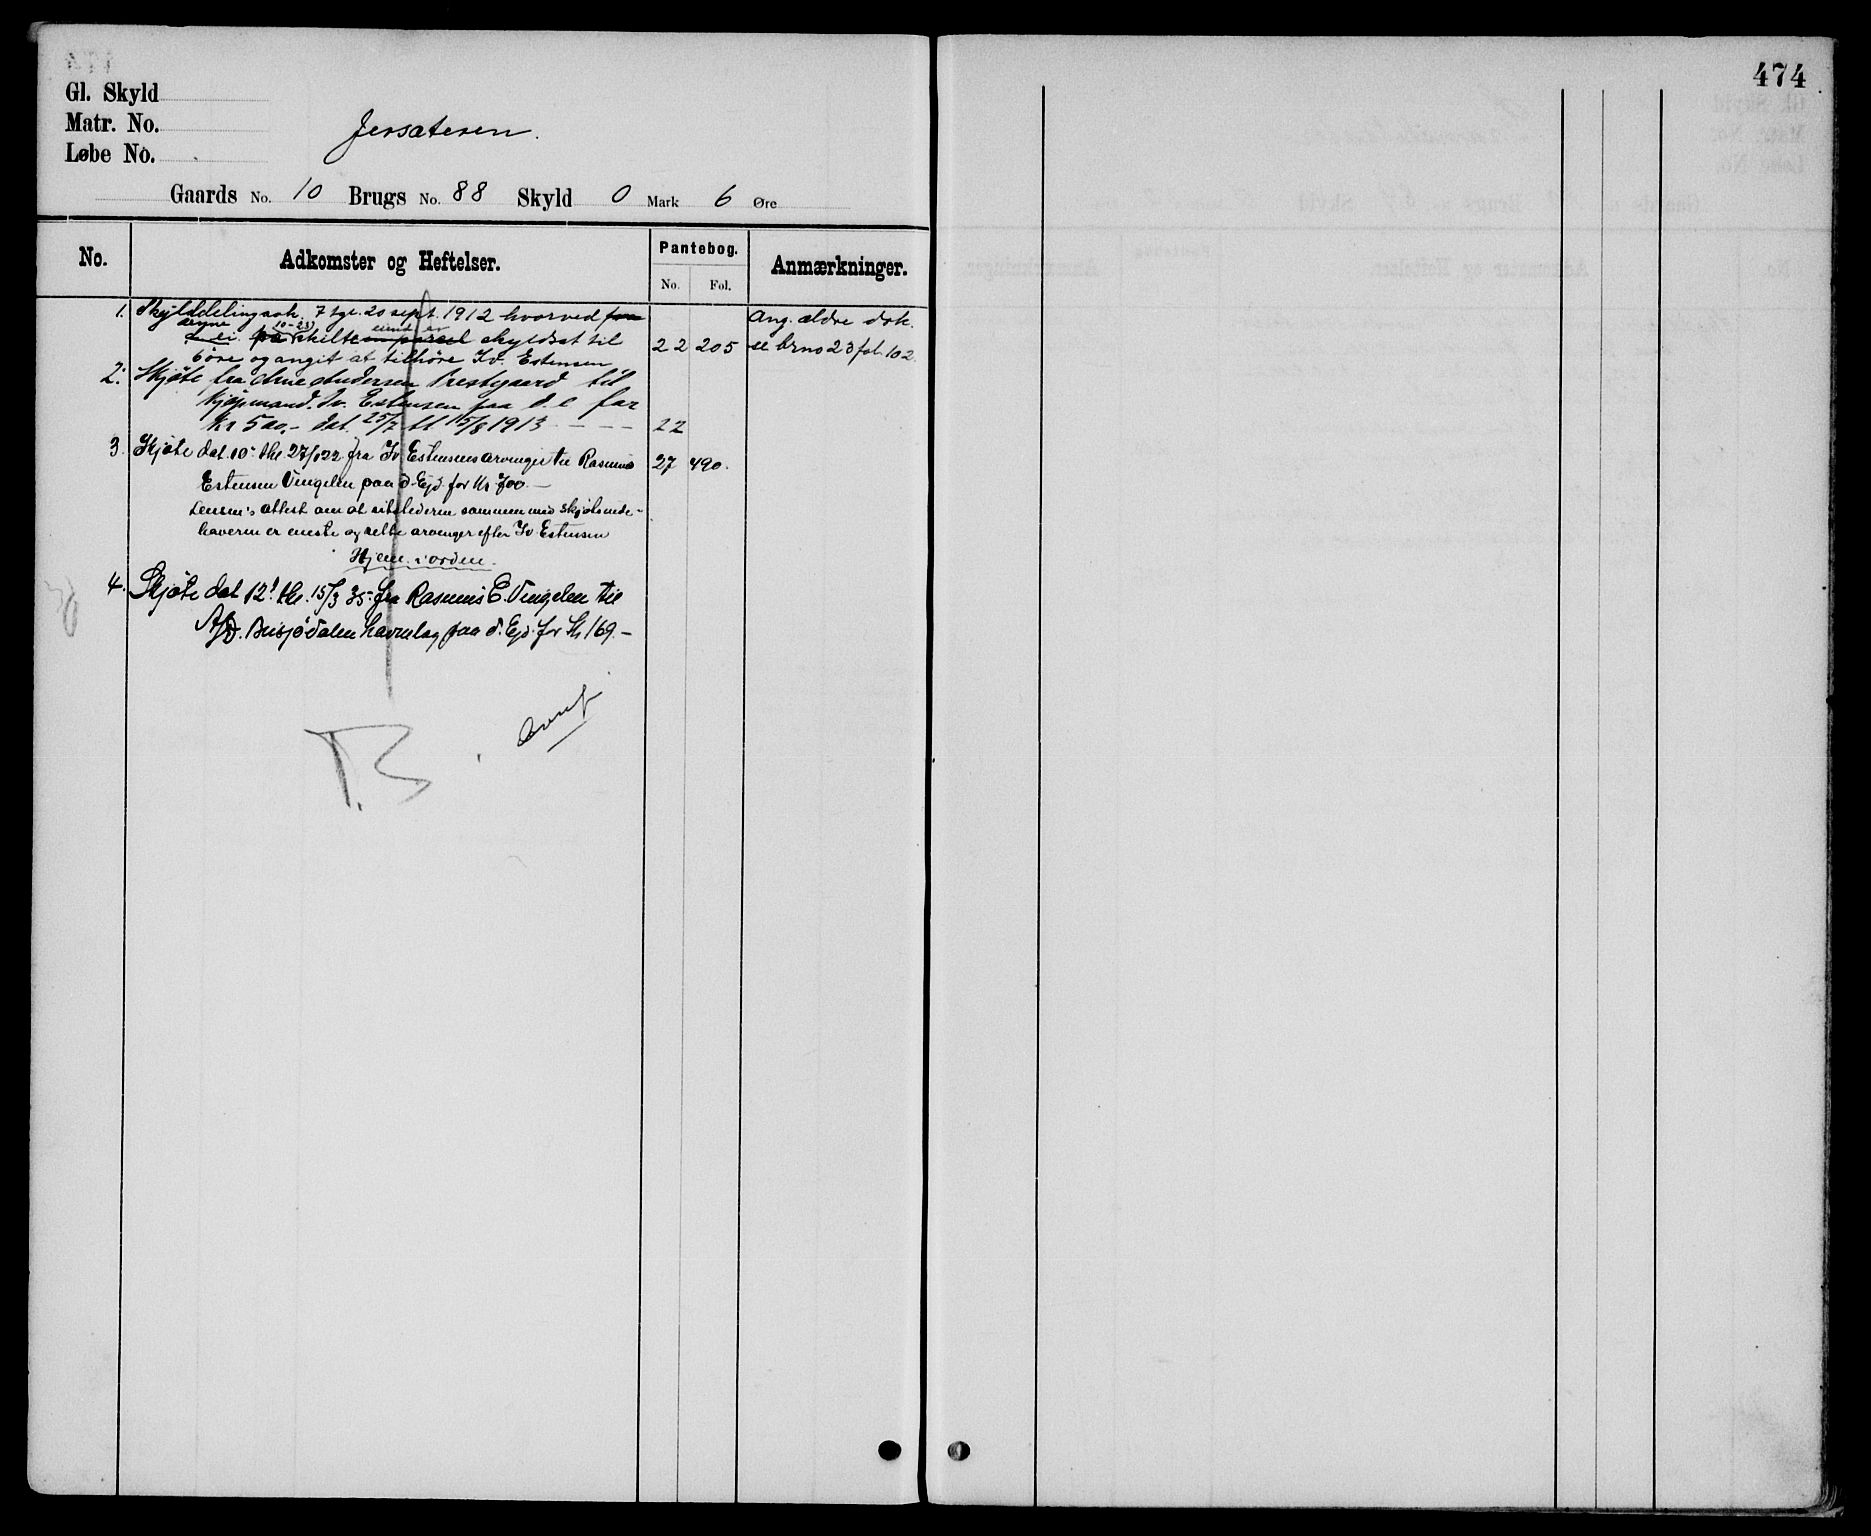 474
Gl. Skyld
Matr. No.
Løbe No.
Jersæteren.
Gaards No. 10 Brugs No. 88 Skyld 0 Mark 6 Øre
No. Adkomster og Heftelser. Pantebog. Anmærkninger.
No. Fol.
1. Skylddelingsfork. 7 tgl. 20 sept. 1912 hvorved fra Ang. ældre dok.
denne 10-23 er
d. ei. fraskilte en parcel skyldsat til 22 205 se brno 23 fol. 102.
6 øre og angit at tilhøre Iv. Estensen
2. Skjøte fra Arne Andersen Prestgaard til
kjøpmand Iv. Estensen paa d. e. for
Kr 500,- dat. 25/7 tl 15/8 1913 - - - - 22
3. Skjøte dat. 10. thl. 27/ 22 fra Iv. Estensens arvinger til Rasmus 27 490.
Estensen Vingelen paa d. Ejd. for Kr 700.-
Lensm's attest om at utstederne sammen med skjøtsinde-
haveren er eneste og rette arvinger efter Iv. Estensen
Hjem. i orden.
4. Skjøte dat 12. thl. 15/3 35. fra Rasmus E. Vingelen til
Busjødalen havnelag paa d. Ejd. for Kr 169.-